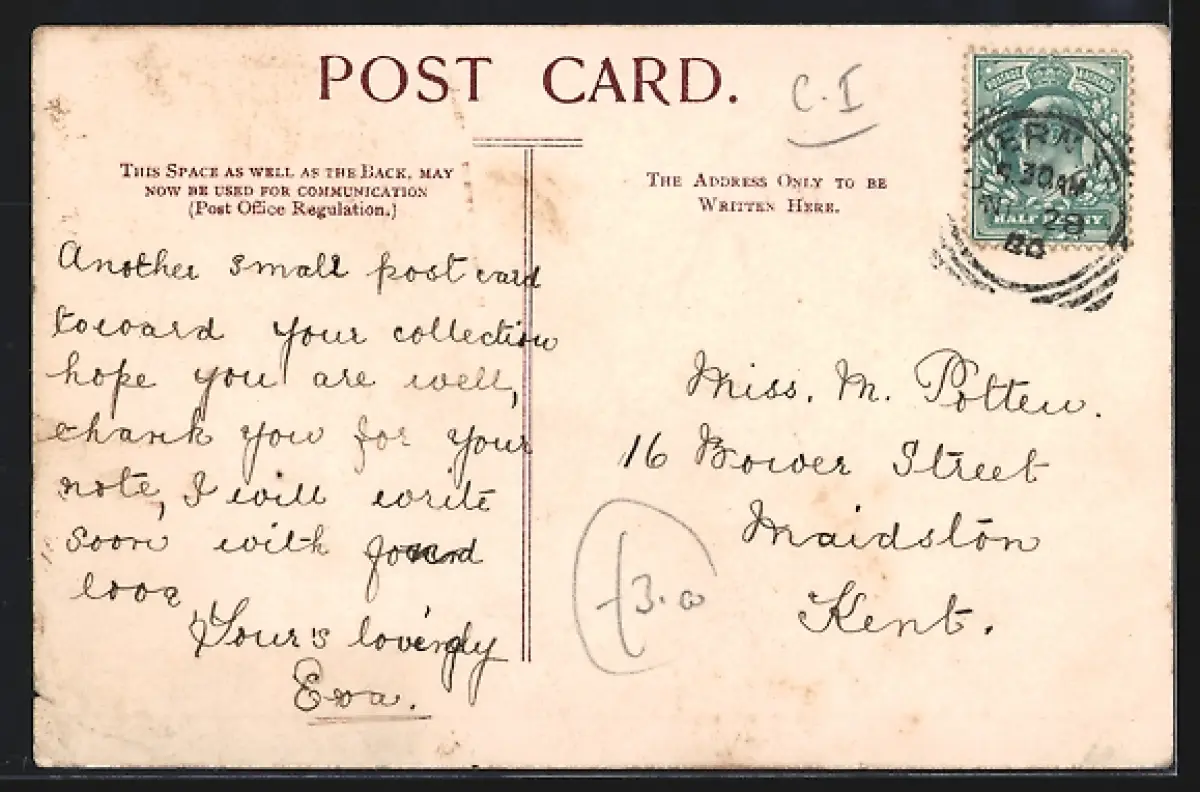 POST CARD.
C.I
THIS SPACE AS WELL AS THE BACK, MAY
NOW BE USED FOR COMMUNICATION
(Post Office Regulation.)
THE ADDRESS ONLY TO BE
WRITTEN HERE.
POSTAGE REVENUE
30 AM
28
HALF PENNY
Another small post card
toward your collection
hope you are well,
thank you for your
note, I will write
soon with
love
Your's lovingly
Eva.
Miss. M. Potten.
16 Bower Street
Maidston
Kent.